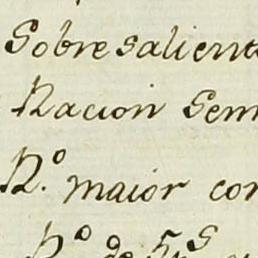 Sobresalient
Nacion Sem
N.º maior con
N.º de 5rs